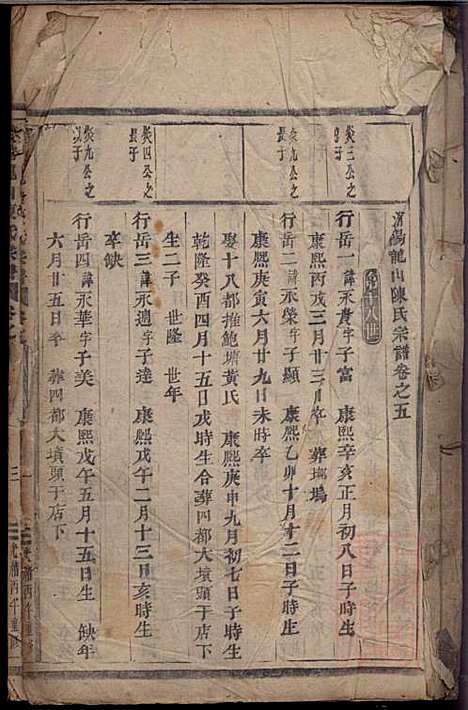 龍山陳氏宗譜卷之五
十八世
炎三公之長子
行岳一諱永貴字子富 康熙辛亥正月初八日子時生
康熙丙戌三月廿三日卒 葬塢
炎九公之長子
行岳二諱永榮字子顯 康熙乙卯十月十二日子時生
康熙庚寅六月廿九日未時卒
娶十八都推鮑塘黃氏 康熙庚申九月初七日子時生
乾隆癸酉四月十五日戌時生合葬四都大墳頭于店下
生二子 世隆 世年
炎四公之長子
行岳三諱永適字子達 康熙戊午二月十三日亥時生
卒缺
炎九公之長子
行岳四諱永華字子美 康熙戊午五月十五日生 缺年
六月廿五日卒 葬四都大墳頭于店下